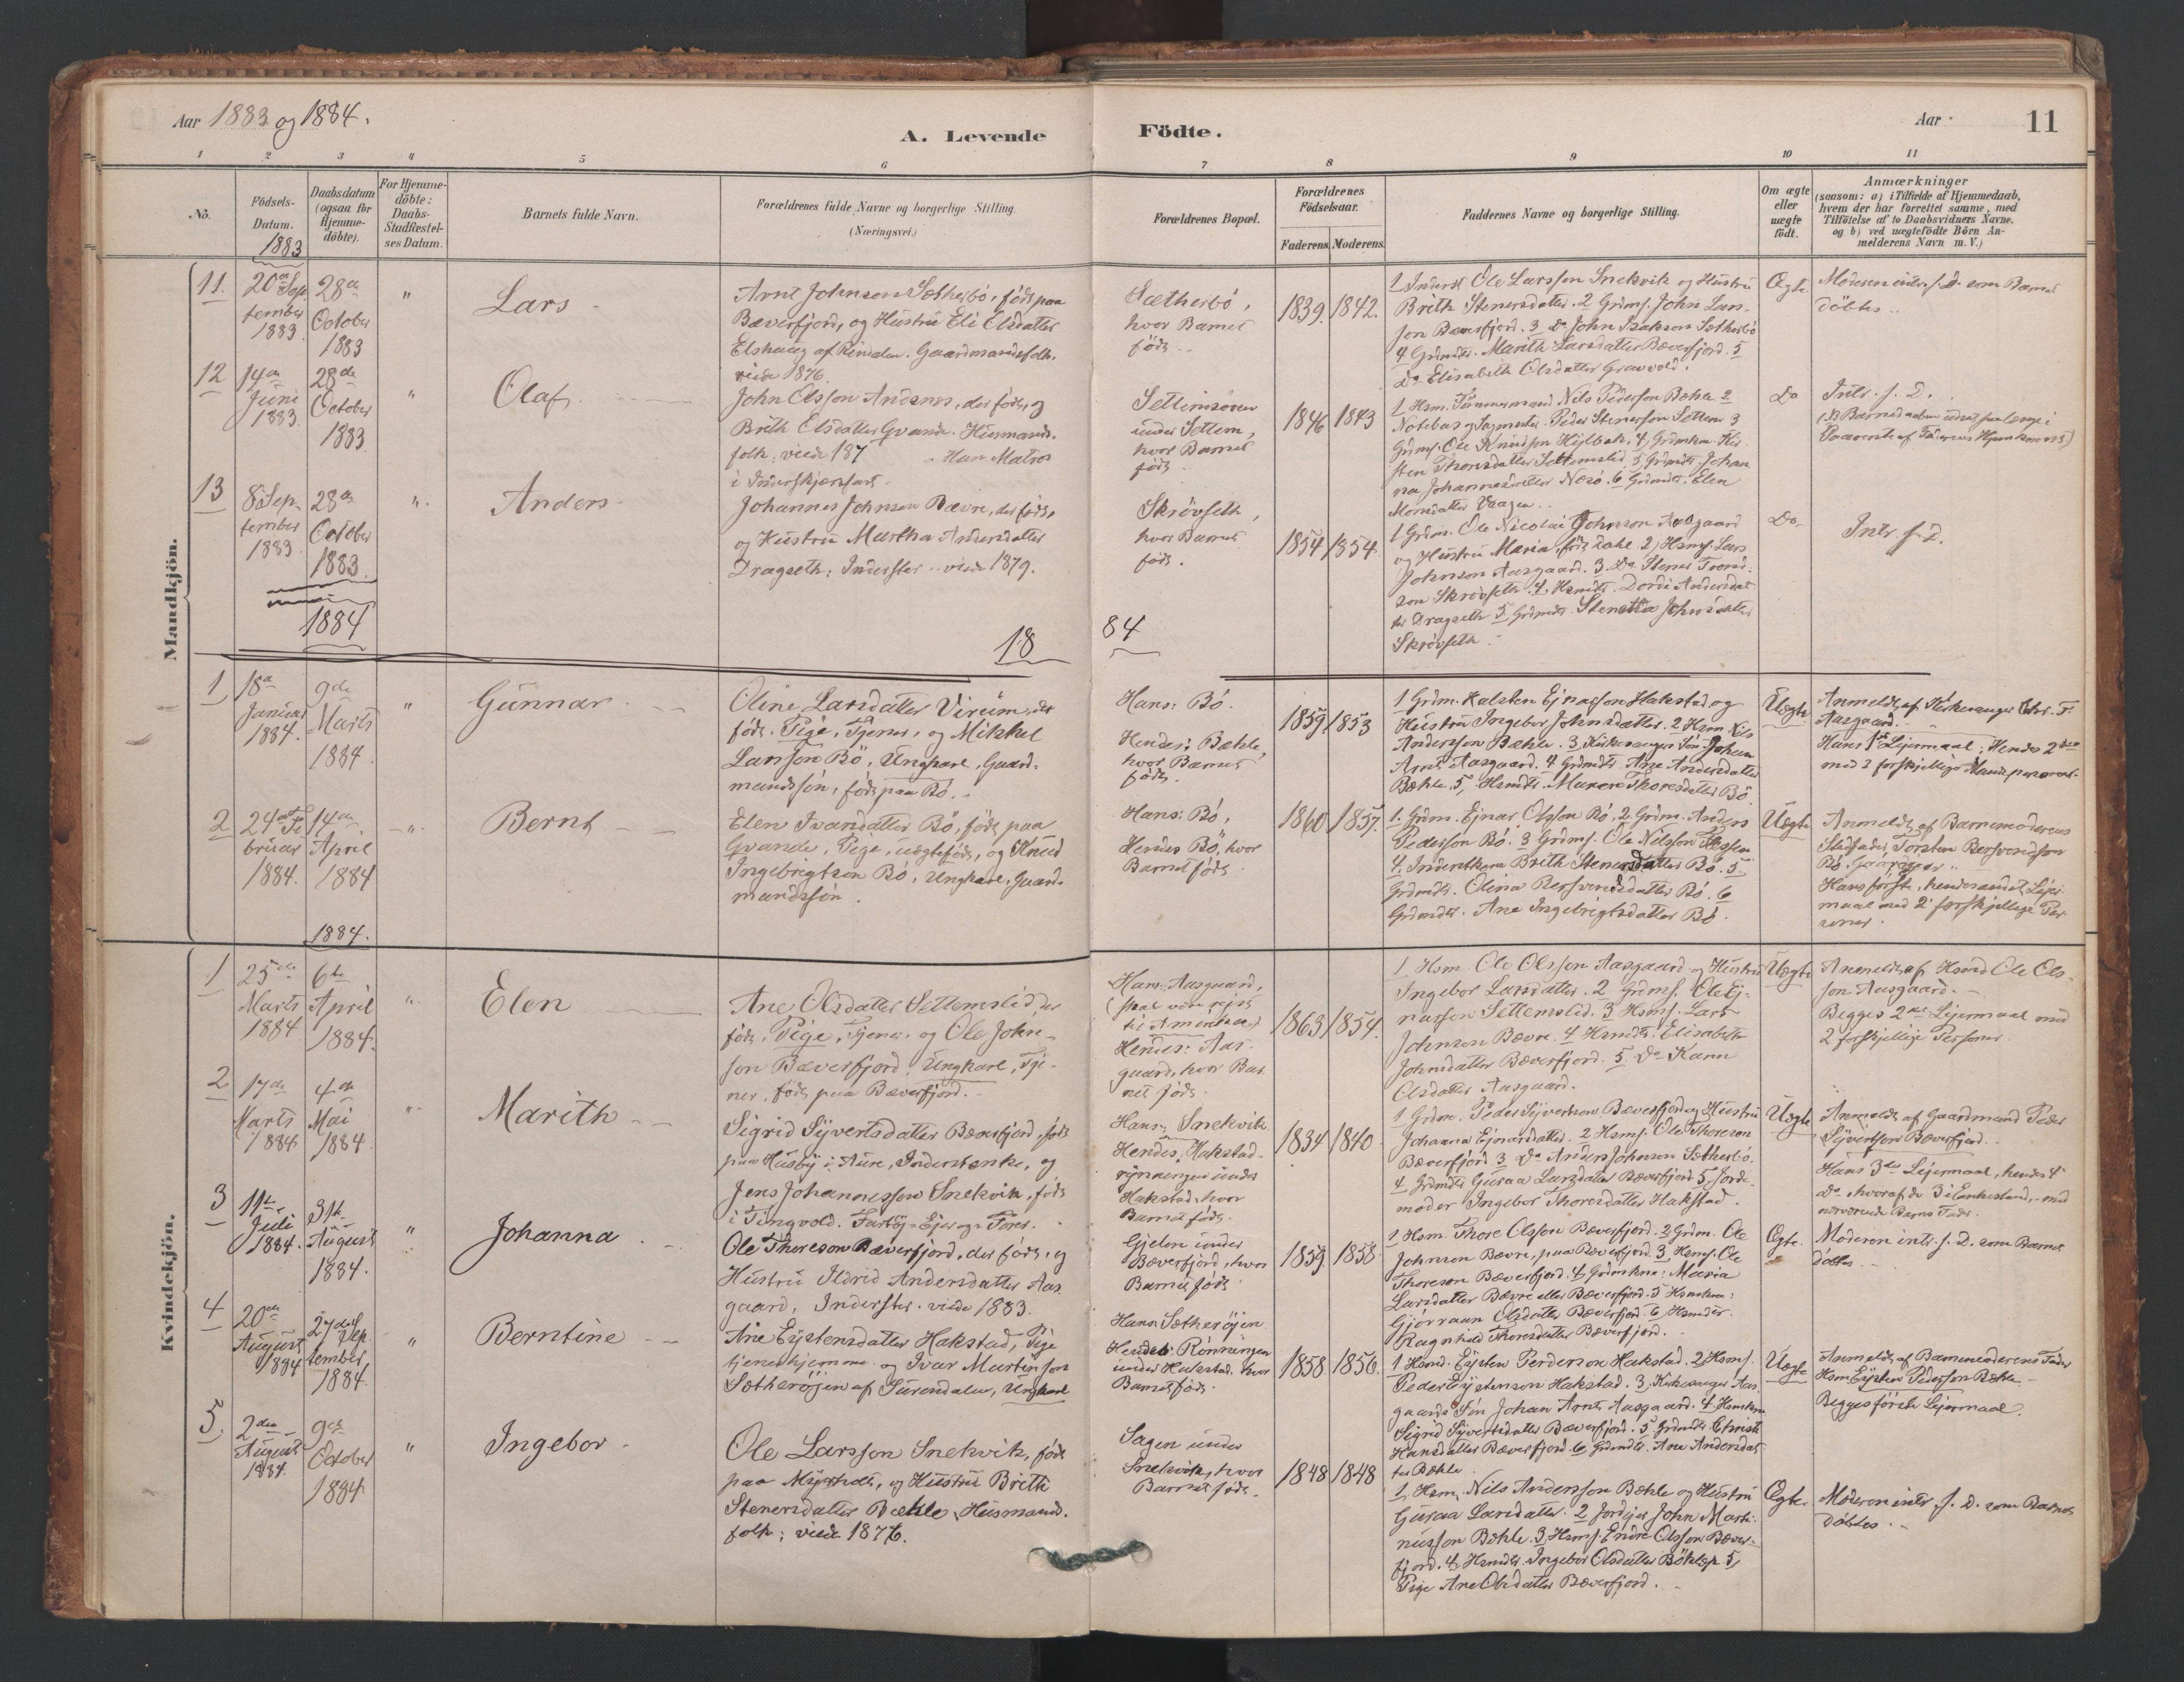 Aar 1883 og 1884.
A. Levende Födte.
Aar
11
1 2 3 4 5 6 7 8 9 10 11
No.
Födsels-
Datum.
1883
Daabsdatum
(ogsaa for
Hjemme-
döbte).
For Hjemme-
döbte:
Daabs-
Stadfæstel-
ses Datum.
Barnets fulde Navn.
Forældrenes fulde Navne og borgerlige Stilling.
(Næringsvei.)
Forældrenes Bopæl.
Forældrenes
Födselsaar.
Faderens. Moderens.
Faddernes Navne og borgerlige Stilling.
Om ægte
eller
uægte
födt.
Anmærkninger
(saasom: a) i Tilfælde af Hjemmedaab,
hvem der har forrettet samme, med
Tilföielse af to Daabsvidners Navne,
og b) ved uægtefödte Börn An-
melderens Navn m. V.)
Mandkjön.
11.
20de Sep
tember
1883.
28de
October
1883
"
Lars
Arnt Johnson Sætherbö, föds paa
Bæverfjord, og Hustru Eli Elsdatter
Elshaug af Rindalen. Gaardmandsfolk.
viede 1876.
Sætherbö,
hvor Barnet
föds.
1839. 1842.
1 Inderst Ole Larsson Snekvik og Hustru
Brith Stenersdatter. 2 Grdms. John Lars-
son Bæverfjord. 3 Do John Isakson Sætherbö
4 Grdmdtr. Marith Larsdatter Bæverfjord. 5
Do Elisabeth Olsdatter
Ægte.
Moderen intr. f. D. som Barnet
döbtes.
12
14de
Juni
1883.
28de
October
1883
"
Olaf.
John Olsson Andsnes, der föds, og
Brith Elsdatter Gvande. Husmands-
folk; viede 187 . Han Matros
under Settem,
hvor Barnet
föds.
1846 1843
1 Hsm. Tömmermand Nils Pederson Bæhle 2
Peder Stenersson Settem 3
Grdms. Ole Knudson
Settemslid. 5 Grdmdtr. Johan
na Johannesdatter Nesö. 6 Grdmdtr. Elen
Monsdatter
Do
Intr. f. D.
13
8de Sep-
tember
1883.
28de
October
1883.
"
Anders.
Johannes Johnson Bævre, der föds,
og Hustru Martha Andersdatter
Dragseth; Inderster. viede 1879.
Skrövseth,
hvor Barnet
föds.
1854 1854.
1 Grdm. Ole Nicolai Johnson Aasgaard
og Hustru Maria, föds Dahl. 2, Hsms. Lars
Johnson Aasgaard. 3. Do Stener Trond-
son Skrövseth. 4. Hsmdtr. Dordi Andersdat-
ter Dragseth 5 Grdmdtr. Stenetta Johnsdatter
Skrövseth.
Do
Intr. f. D.
1884
18 84
1
18de
Januar
1884.
9de
Marts
1884
"
Gunnar.
Oline Larsdatter Virum, der
föds. Pige, Tjener, og Mikkel
Larsson Bö, Ungkarl, Gaard-
mandssön, föds paa Bö.
Hans: Bö.
Hendes: Bæhle,
hvor Barnet
föds.
1859 1853
1 Grdm. Halsten Ejnarsson Hakstad og
Hustru Ingebor Johnsdatter. 2 Hsm. Nils
Andersson Bæhle. 3 Kirkesanger Sön Johan
Arnt Aasgaard. 4 Grdmdtr. Ane Andersdatter
Bæhle. 5, Hsmdtr. Maren Thoresdatter Bö.
Uægte
Anmeldt af Kirkesanger
Aasgaard.
Hans 1ste Lejermaal; Hendes 2det
med 2 forskjellige Mandspersoner.
2
24de Fe
bruar
1884.
14de
April
1884
"
Bernt
Elen Ivarsdatter Bö, föds paa
Gvande, Pige, uægteföds, og Knud
Ingebrigtson Bö, Ungkarl, Gaard-
mandssön.
Hans: Bö,
Hendes Bö, hvor
Barnet föds
1860 1857.
1. Grdm. Ejnar Olsson Bö. 2 Grdm. Anders
Pederson Bö. 3 Grdms. Ole Nilsson
4. Inderstkone Brith Stenersdatter Bö. 5.
Grdmdtr. Olina Bersvendsdatter Bö. 6
Grdmdtr. Ane Ingebrigtsdatter Bö.
Uægte
Anmeldt af Barnemoderens
Stedfader, Torsten Bersvendson
Bö.
Hans förste, hendes andet Lejer-
maal med 2 forskjellige Per-
soner.
Kvindekjön.
1884.
1
25de
Marts
1884
6te
April
1884.
"
Elen
Ane Olsdatter Settemslid, der
föds. Pige, Tjener, og Ole John-
son Bæverfjord, Ungkarl, Tje-
ner, föds paa Bæverfjord.
Hans: Aasgaard,
(skal være rejst
til Amerika)
Hendes: Aas-
gaard, hvor Bar
net föds.
1863 1854.
1 Hsm. Ole Olsson Aasgaard og Hustru
Ingebor Larsdatter. 2 Grdms. Ole Ej-
narsson Settemslid. 3 Hsms. Lars
Johnson Bævre. 4 Hsmdtr. Elisabeth
Johnsdatter Bæverfjord. 5. Do Karen
Olsdatter Aasgaard.
Uægte
Anmeldt af Hsmd Ole Ols-
son Aasgaard.
Begges 2det Lejermaal med
2 forskjellige Personer.
2
17de
Marts
1884
4de
Mai
1884.
"
Marith
Sigrid Sjvertsdatter Bæverfjord, föds
paa Husby i Aure, Inderstenke, og
Jens Johannesson Snekvik, föds
i Tingvold.
Hans: Snekvik
Hendes: Hakstad-
rönningen under
Hakstad, hvor
Barnet föds.
1834 1840
1 Grdm. Peder Sjvertson Bæverfjord og Hustru
Johanna Ejnarsdatter. 2 Hsms. Ole Thoreson
Bæverfjord 3 Do Anders Johnson Sætherbö.
4 Grdmdtr Guraa Larsdatter Bæverfjord. 5 Jorde-
moder Ingebor Thoresdatter Hakstad.
Uægte
Anmeldt af Gaardmand Peder
Sjvertson Bæverfjord.
Hans 3die Lejermaal, hendes 4
do, hvoraf de 3 i Enkestand, med
nærværende Barns Fader.
3
11te
Juli
1884.
31te
August
1884.
"
Johanna
Ole Thoreson Bæverfjord, der föds, og
Hustru Ildrid Andersdatter Aas-
gaard, Inderster. viede 1883.
Gjelen under
Bæverfjord, hvor
Barnet föds.
1859. 1858.
1 Hsm. Thore Olsson Bæverfjord. 2 Grdm. Ole
Johnson Bævre, paa Bæverfjord. 3 Hsms. Ole
Thoreson Bæverfjord. 4 Grdmkone: Maria
Larsdatter Bævre eller Bæverfjord. 5 Hsmkone:
Gjörraun Olsdatter Bæverfjord. 6 Hsmdtr.
Ragnhild Thoresdatter Bæverfjord.
Ægte.
Moderen intr. f. D. som Barnet
döbtes.
4
20de
August
1884
27de Sep
tember
1884.
"
Berntine
Ane Eystensdatter Hakstad, Pige
tjener hjemme og Ivar Martinson
Sætheröjen af Surendalen, Ungkarl
Hans: Sætheröjen
Hendes: Rönningen
under Hakstad, hvor
Barnet föds.
1858 1856.
1 Hsmd. Eysten Pederson Hakstad. 2 Hsms.
Peder Eystenson Hakstad. 3, Kirkesanger Aas-
gaards Sön Johan Arnt Aasgaard. 4 Hsmkone
Sigrid Sjvertsdatter Bæverfjord. 5 Grdmdtr Christi
Hansdatter Bæverfjord. 6 Grdmdtr. Ane Andersdat-
ter Bæhle.
Uægte
Anmeldt af Barnemoderens Fader
Hsm. Eysten Pederson Bæhle.
Begges förste Lejermaal.
5.
2den
August
1884.
9de
October
1884
"
Ingebor
Ole Larsson Snekvik, föds
paa Mystedt, og Hustru Brith
Stenersdatter Bæhle, Husmand-
folk; viede 1876.
Sagen under
Snekvik, hvor
Barnet föds.
1848 1848
1, Hsm. Nils Andersson Bæhle og Hustru
Guraa Larsdatter. 2 Jordejer John Marti-
nusson Bæhle. 3 Hsms. Endre Olsson Bæver-
fjord. 4, Hsmdtr. Ingebor Olsdatter 5,
Pige Ane Olsdatter Bæverfjord.
Ægte
Moderen intr. f. D. som Barnet
döbtes.